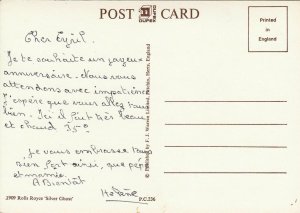 POST CARD
DUPEX
Printed
in
England
Cher Cyril.
Je te souhaite un joyeux
anniversaire. Nous vous
attendons avec impatience
J'espère que vous allez tous
bien. Ici il fait très beau
et chaud 35°
Je vous embrasse tous
bien fort ainsi que pépé
et mamie.
A Bientôt
Hélène
1909 Rolls Royce 'Silver Ghost'
P.C.236
© Published by F. J. Warren Limited, Hitchin, Herts, England